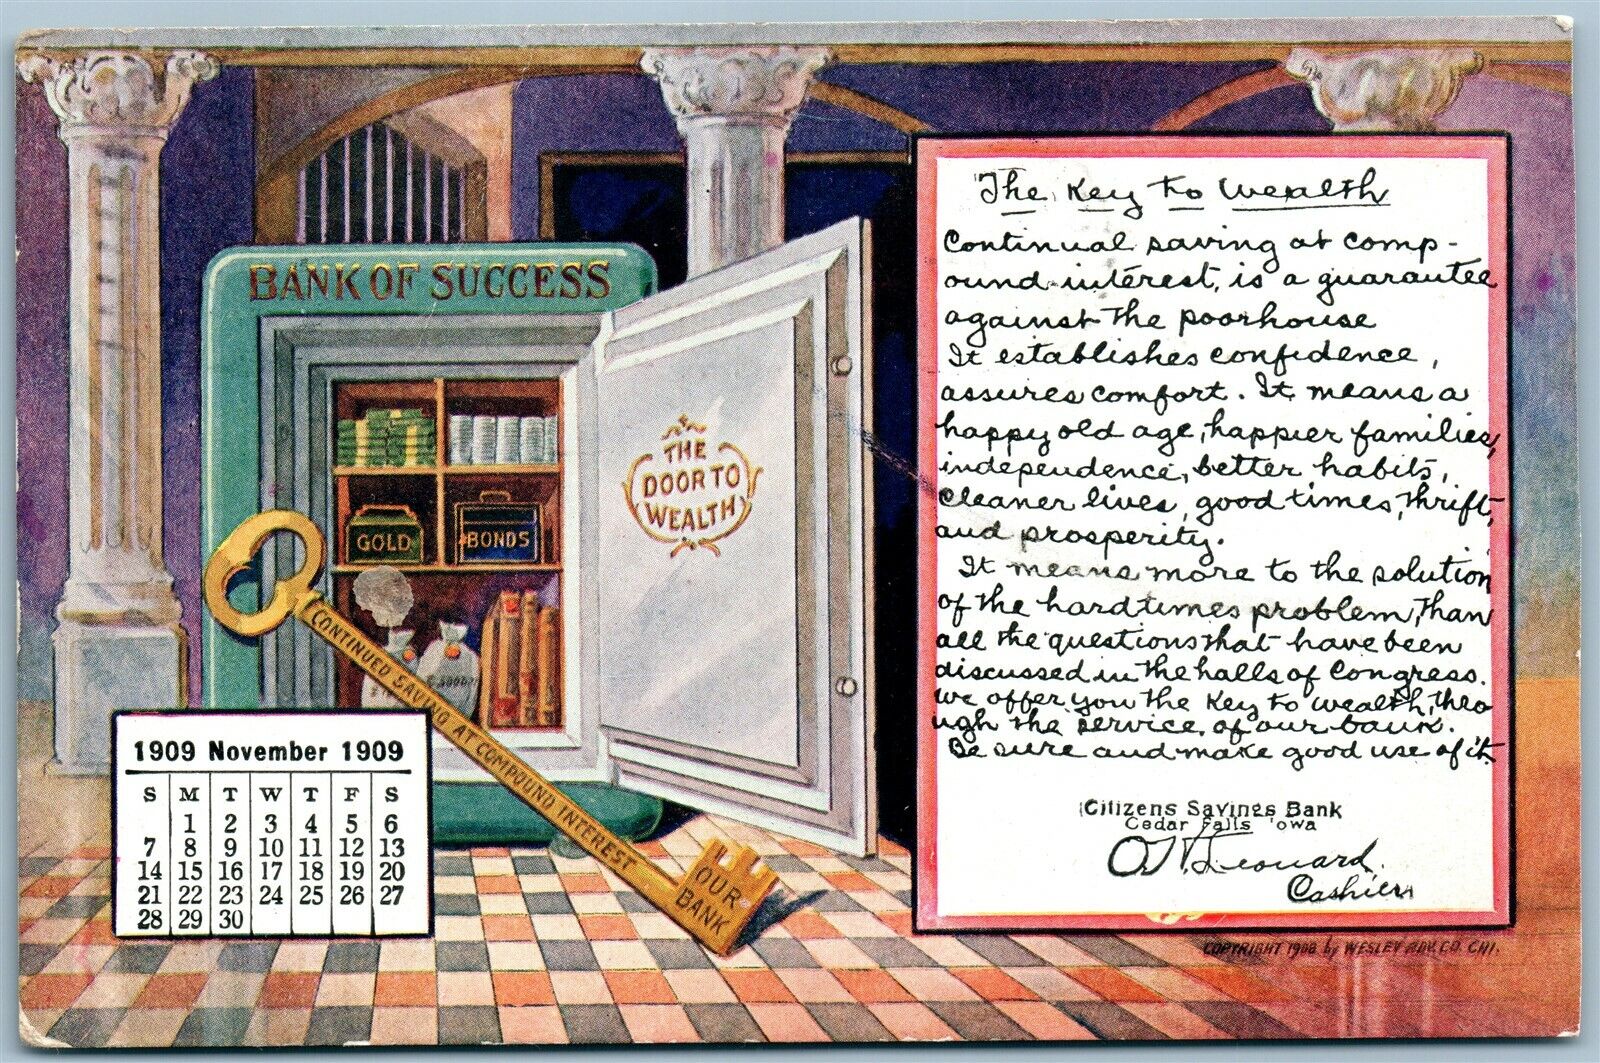 BANK OF SUCCESS
THE
DOOR TO
WEALTH
GOLD
BONDS
CONTINUED SAVING AT COMPOUND INTEREST
OUR
BANK
1909 November 1909
S M T W T F S
1 2 3 4 5 6
7 8 9 10 11 12 13
14 15 16 17 18 19 20
21 22 23 24 25 26 27
28 29 30
The Key to Wealth
Continual saving at comp-
ound interest, is a guarautee
against the poorhouse
It establishes confidence,
assures comfort. It means a
happy old age, happier families,
independence, better habits,
cleaner lives, good times, thrift,
and prosperity.
It means more to the solution
of the hard times problem, than
all the questions that have been
discussed in the halls of Congress.
We offer you the Key to wealth, thro
ugh the service of our bank.
Be sure and make good use of it.
Citizens Savings Bank
Cedar Falls Iowa
Leonard.
Cashier
COPYRIGHT 1908 by WESLEY ADV. CO. CHI.